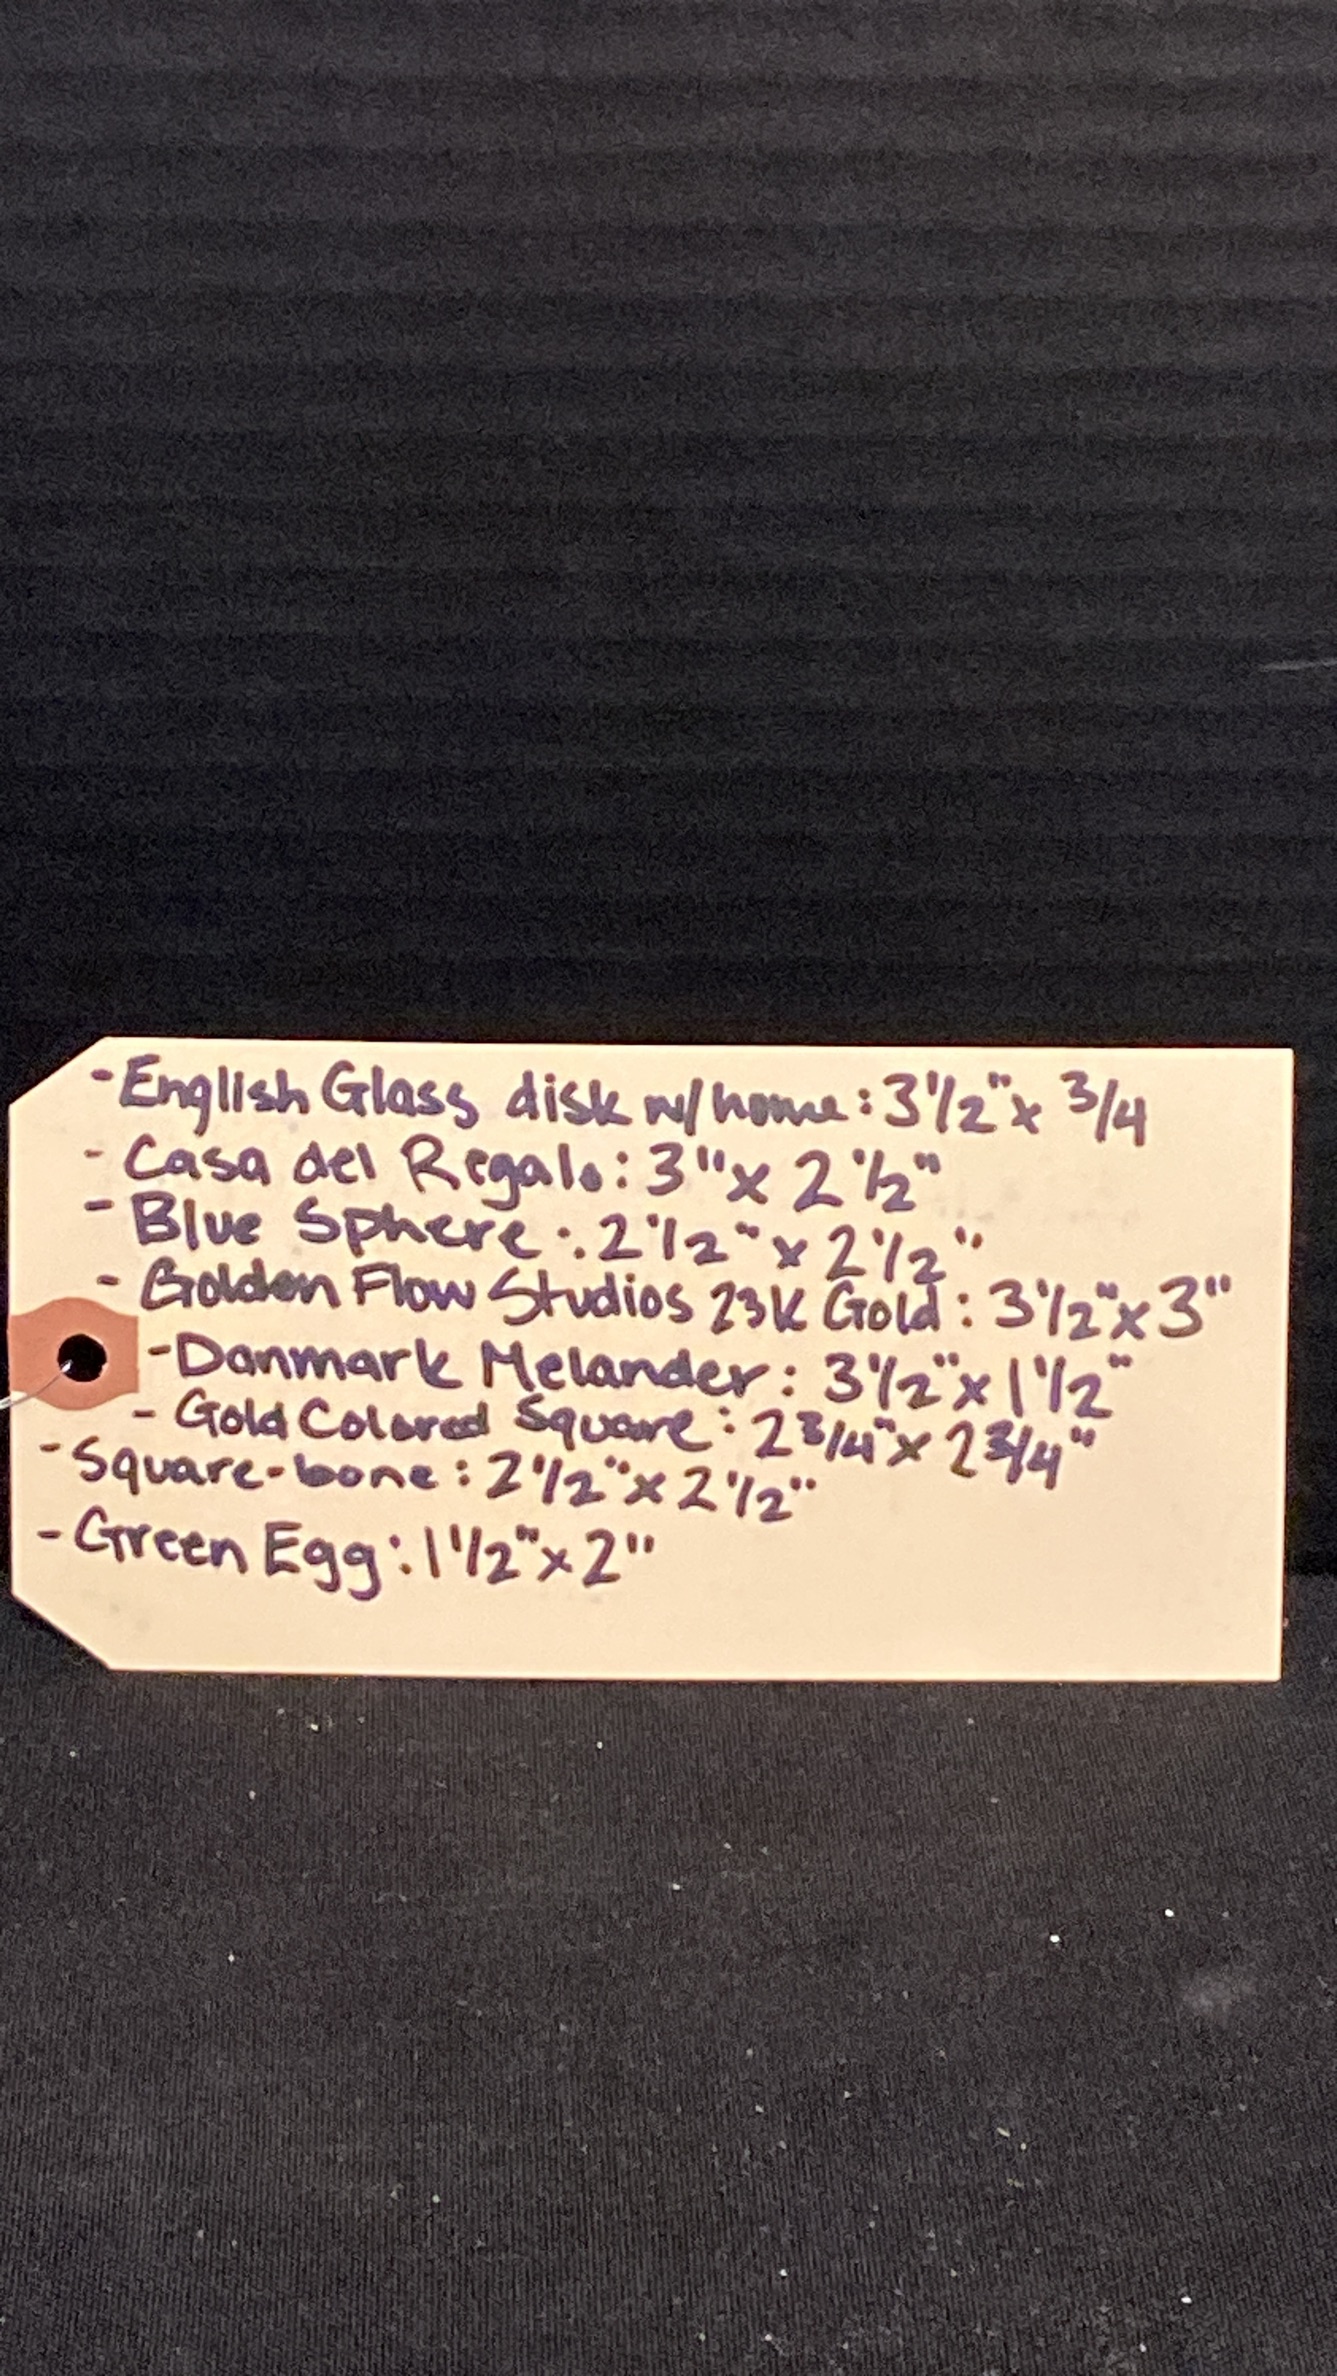 - English Glass disk w/ home: 3 1/2" x 3/4
- Casa del Regalo: 3" x 2 1/2"
- Blue Sphere: 2 1/2" x 2 1/2"
- Golden Flow Studios 23K Gold: 3 1/2" x 3"
- Danmark Melander: 3 1/2" x 1 1/2"
- Gold Colored Square: 2 3/4" x 2 3/4"
- Square-bone: 2 1/2" x 2 1/2"
- Green Egg: 1 1/2" x 2"